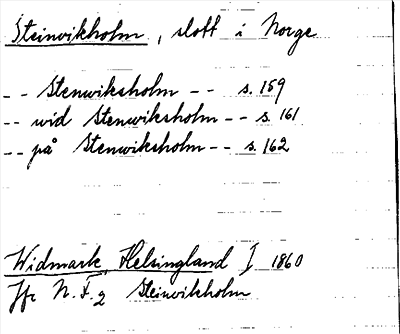 Steinvikholm, slott i Norge
- - Stenwiksholm - - s. 159
- - wid Stenwiksholm - - s. 161
- - på Stenwiksholm - - s. 162
Widmark, Helsingland I 1860
Jfr N.F.2 Steinvikholm